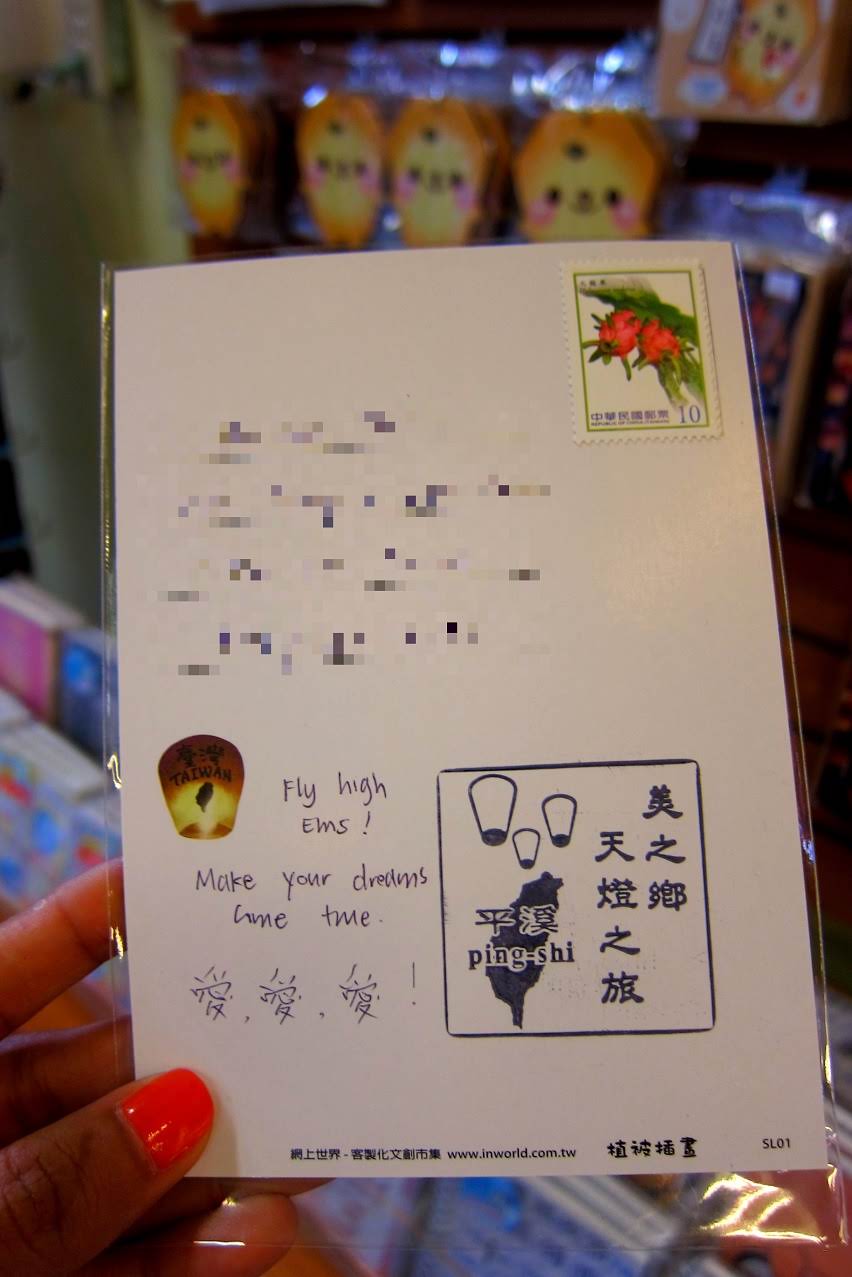 中華民國郵票 10
REPUBLIC OF CHINA (TAIWAN)
臺灣
TAIWAN
Fly high
Ems!
Make your dreams
come true.
愛, 愛, 愛!
美之鄉
天燈之旅
平溪
ping-shi
網上世界-客製化文創市集 www.inworld.com.tw 植被插畫 SL01